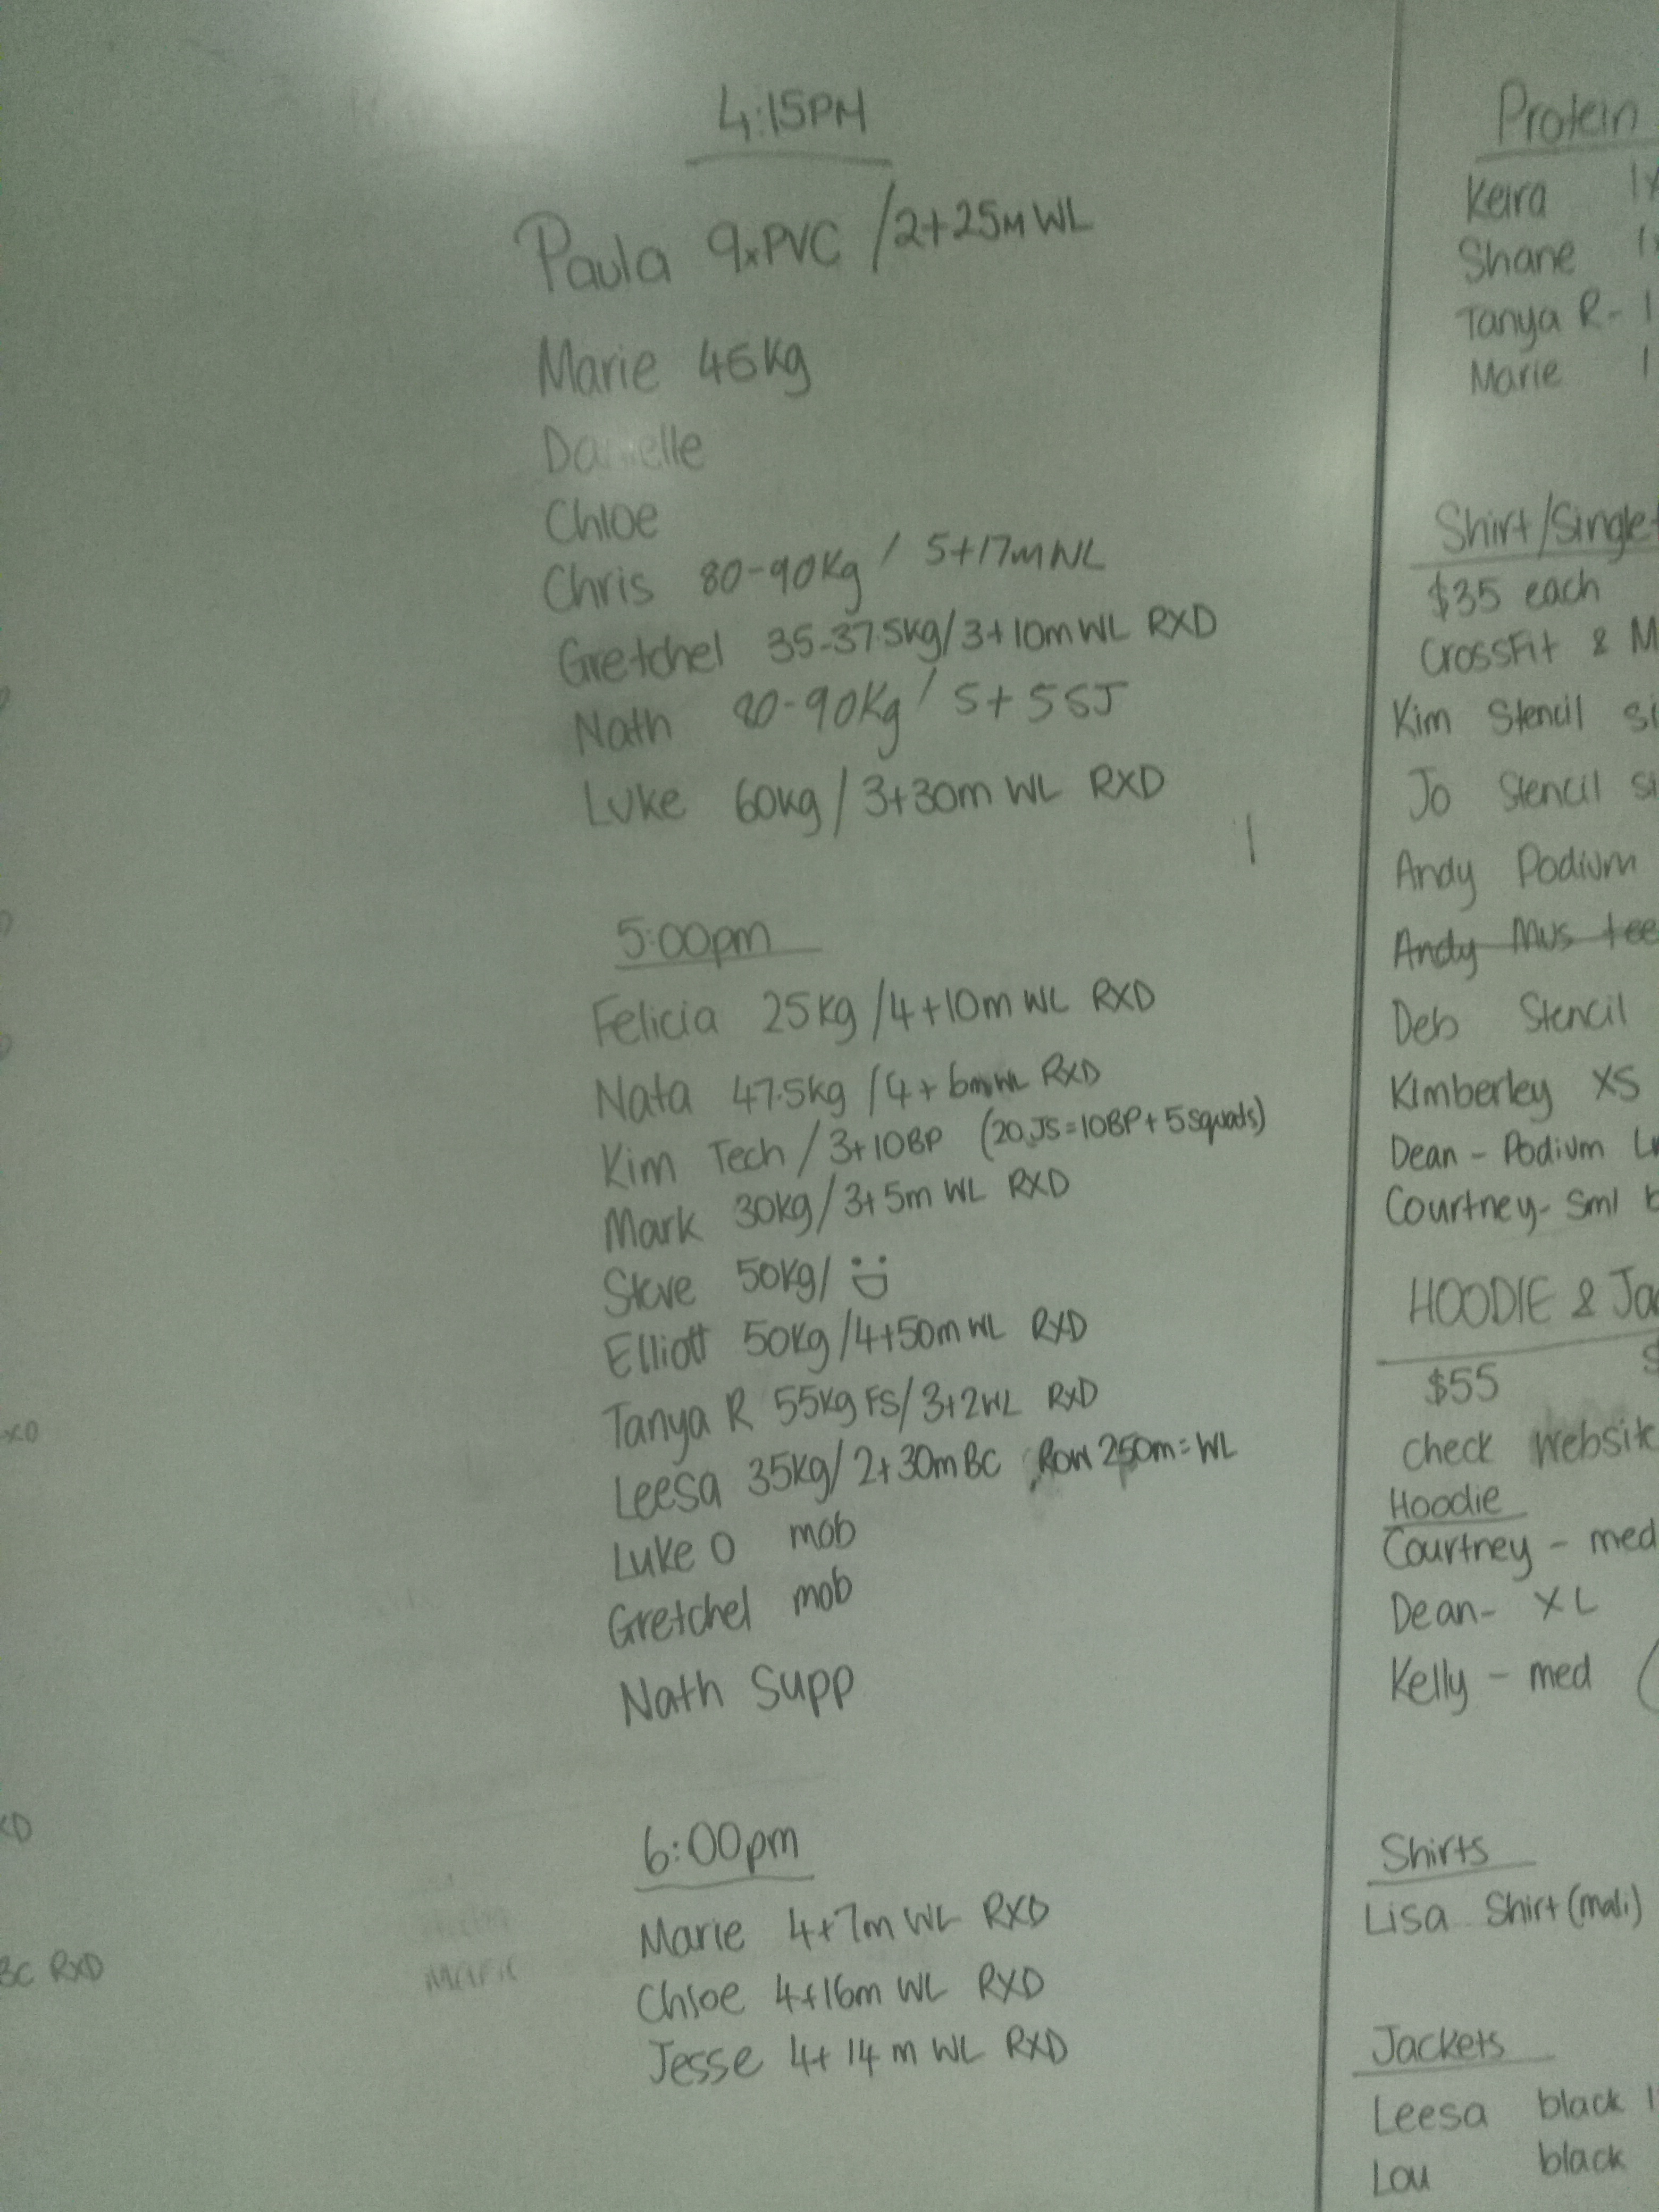 4:15PM
Paula 9xPVC /2+25M WL
Marie 45kg
Danielle
Chloe
Chris 80-90kg / 5+17m WL
Gretchel 35-37.5kg/3+10m WL RXD
Nath 80-90kg / 5+5 SJ
Luke 60kg/3+30m WL RXD
5:00pm
Felicia 25kg/4+10m WL RXD
Nata 47.5kg/4+6m WL RXD
Kim Tech/3+10BP (20 JS=10BP+5squats)
Mark 30kg/3+5m WL RXD
Steve 50kg/
Elliott 50kg/4+50m WL RXD
Tanya R 55kg FS/3+2WL RXD
Leesa 35kg/2+30m BC Row 250m=WL
Luke O mob
Gretchel mob
Nath Supp
6:00pm
Marie 4+7m WL RXD
Chloe 4+16m WL RXD
Jesse 4+14m WL RXD
BC RXD
Marie
Protein
Keira
Shane
Tanya R- 1
Marie 1
Shirt/Singlet
$35 each
CrossFit & M
Kim Stencil
Jo Stencil
Andy Podium
Andy Mus tee
Deb Stencil
Kimberley XS
Dean - Podium
Courtney- Sml
HOODIE & Ja
$55
check website
Hoodie
Courtney - med
Dean- XL
Kelly - med
Shirts
Lisa Shirt (mali)
Jackets
Leesa black
Lou black